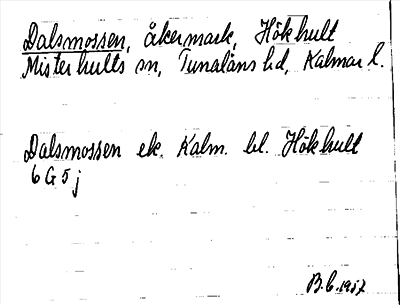 Dalsmossen, åkermark, Hökhult
Misterhults sn, Tunaläns hd, Kalmar l.
Dalsmossen ek. Kalm. bl. Hökhult
6 G 5 j